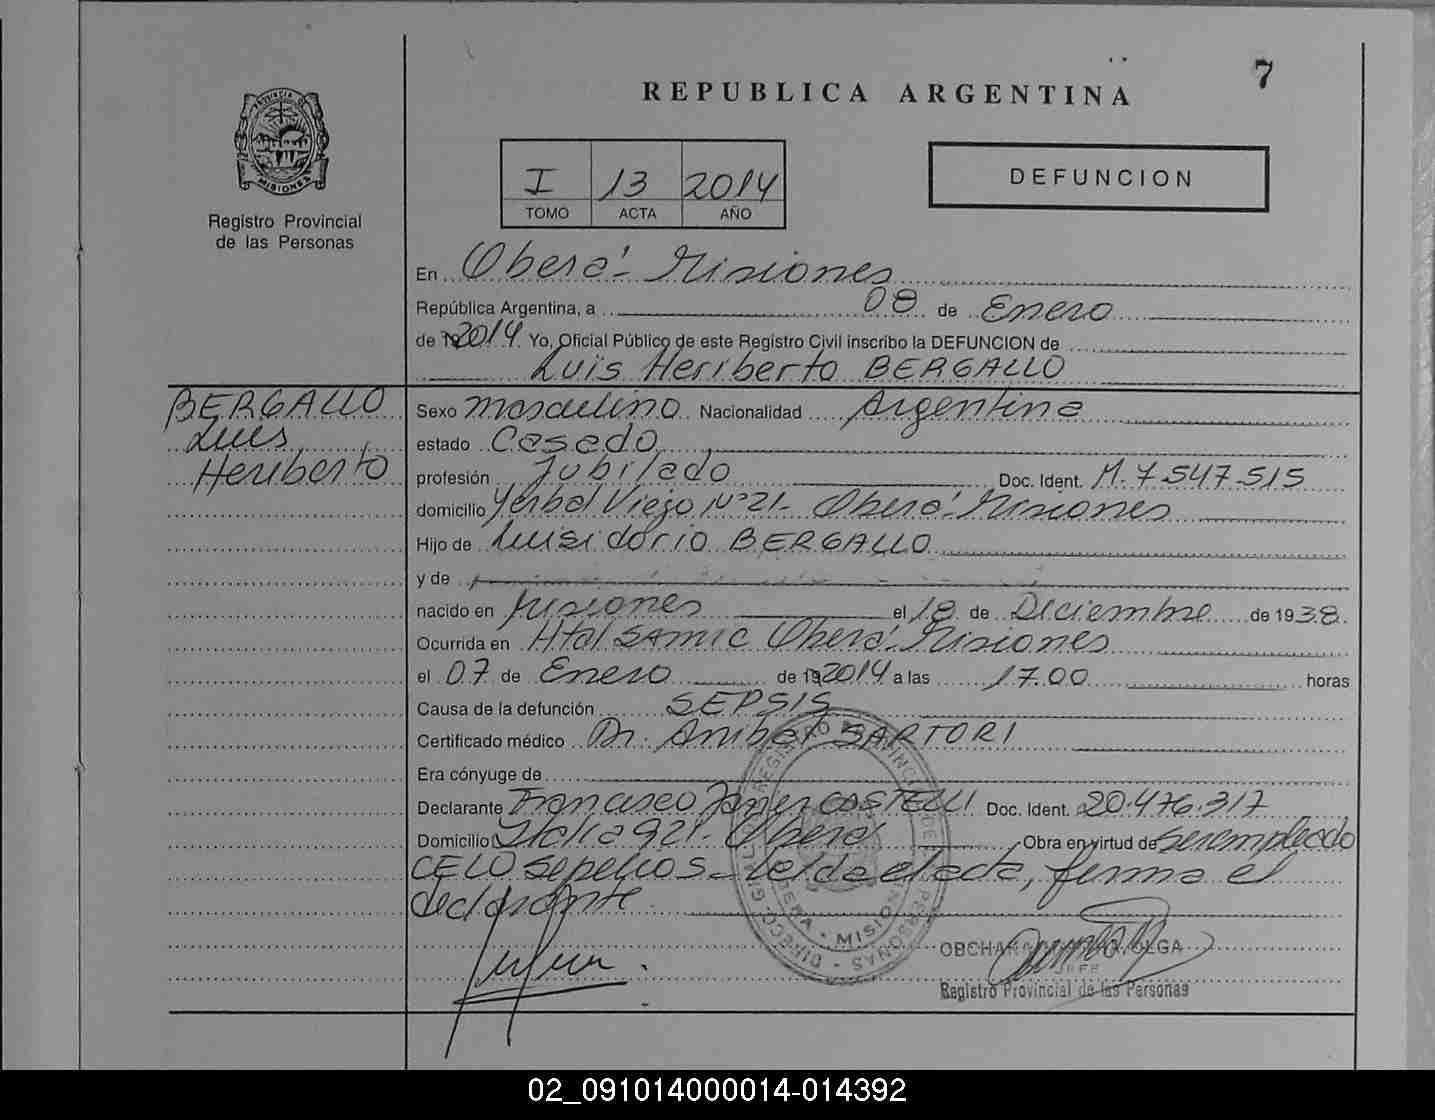 7
REPUBLICA ARGENTINA
PROVINCIA DE
MISIONES
Registro Provincial
de las Personas
I 13 2014
TOMO ACTA AÑO
DEFUNCION
En Oberá - Misiones
República Argentina, a 08 de Enero
de 2014 Yo, Oficial Público de este Registro Civil inscribo la DEFUNCION de
Luis Heriberto BERGALLO
BERGALLO
Luis
Heriberto
Sexo masculino Nacionalidad Argentina
estado Casado
profesión Jubilado Doc. Ident. M. 7.547.515
domicilio Yerbal Viejo Nº 21 - Oberá - Misiones
Hijo de Luisidorio BERGALLO
y de
nacido en Misiones el 18 de Diciembre de 1938
Ocurrida en Htal SAMIC Oberá - Misiones
el 07 de Enero de 2014 a las 17.00 horas
Causa de la defunción SEPSIS
Certificado médico Dr. Anibal SARTORI
Era cónyuge de
Declarante Francisco Javier CASTELLI Doc. Ident. 20.476.317
Domicilio Italia 921 - Oberá Obra en virtud de ser empleado
CELO sepelios - Leída el acta, firma el
declarante
MISIONES
OLGA
JEFE
Registro Provincial de las Personas
02_091014000014-014392